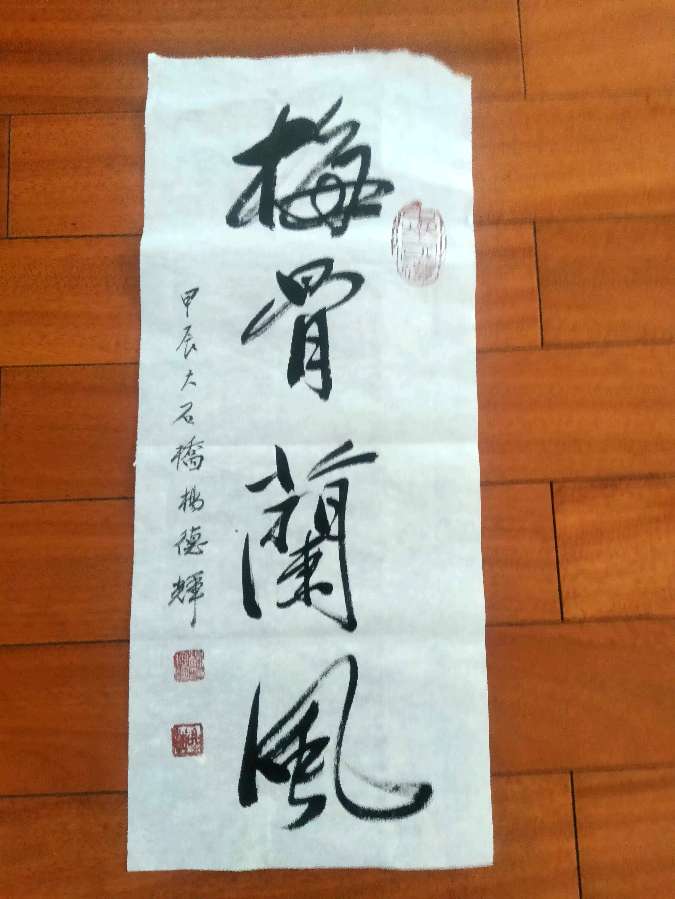 梅骨蘭風
甲辰大石橋楊德輝